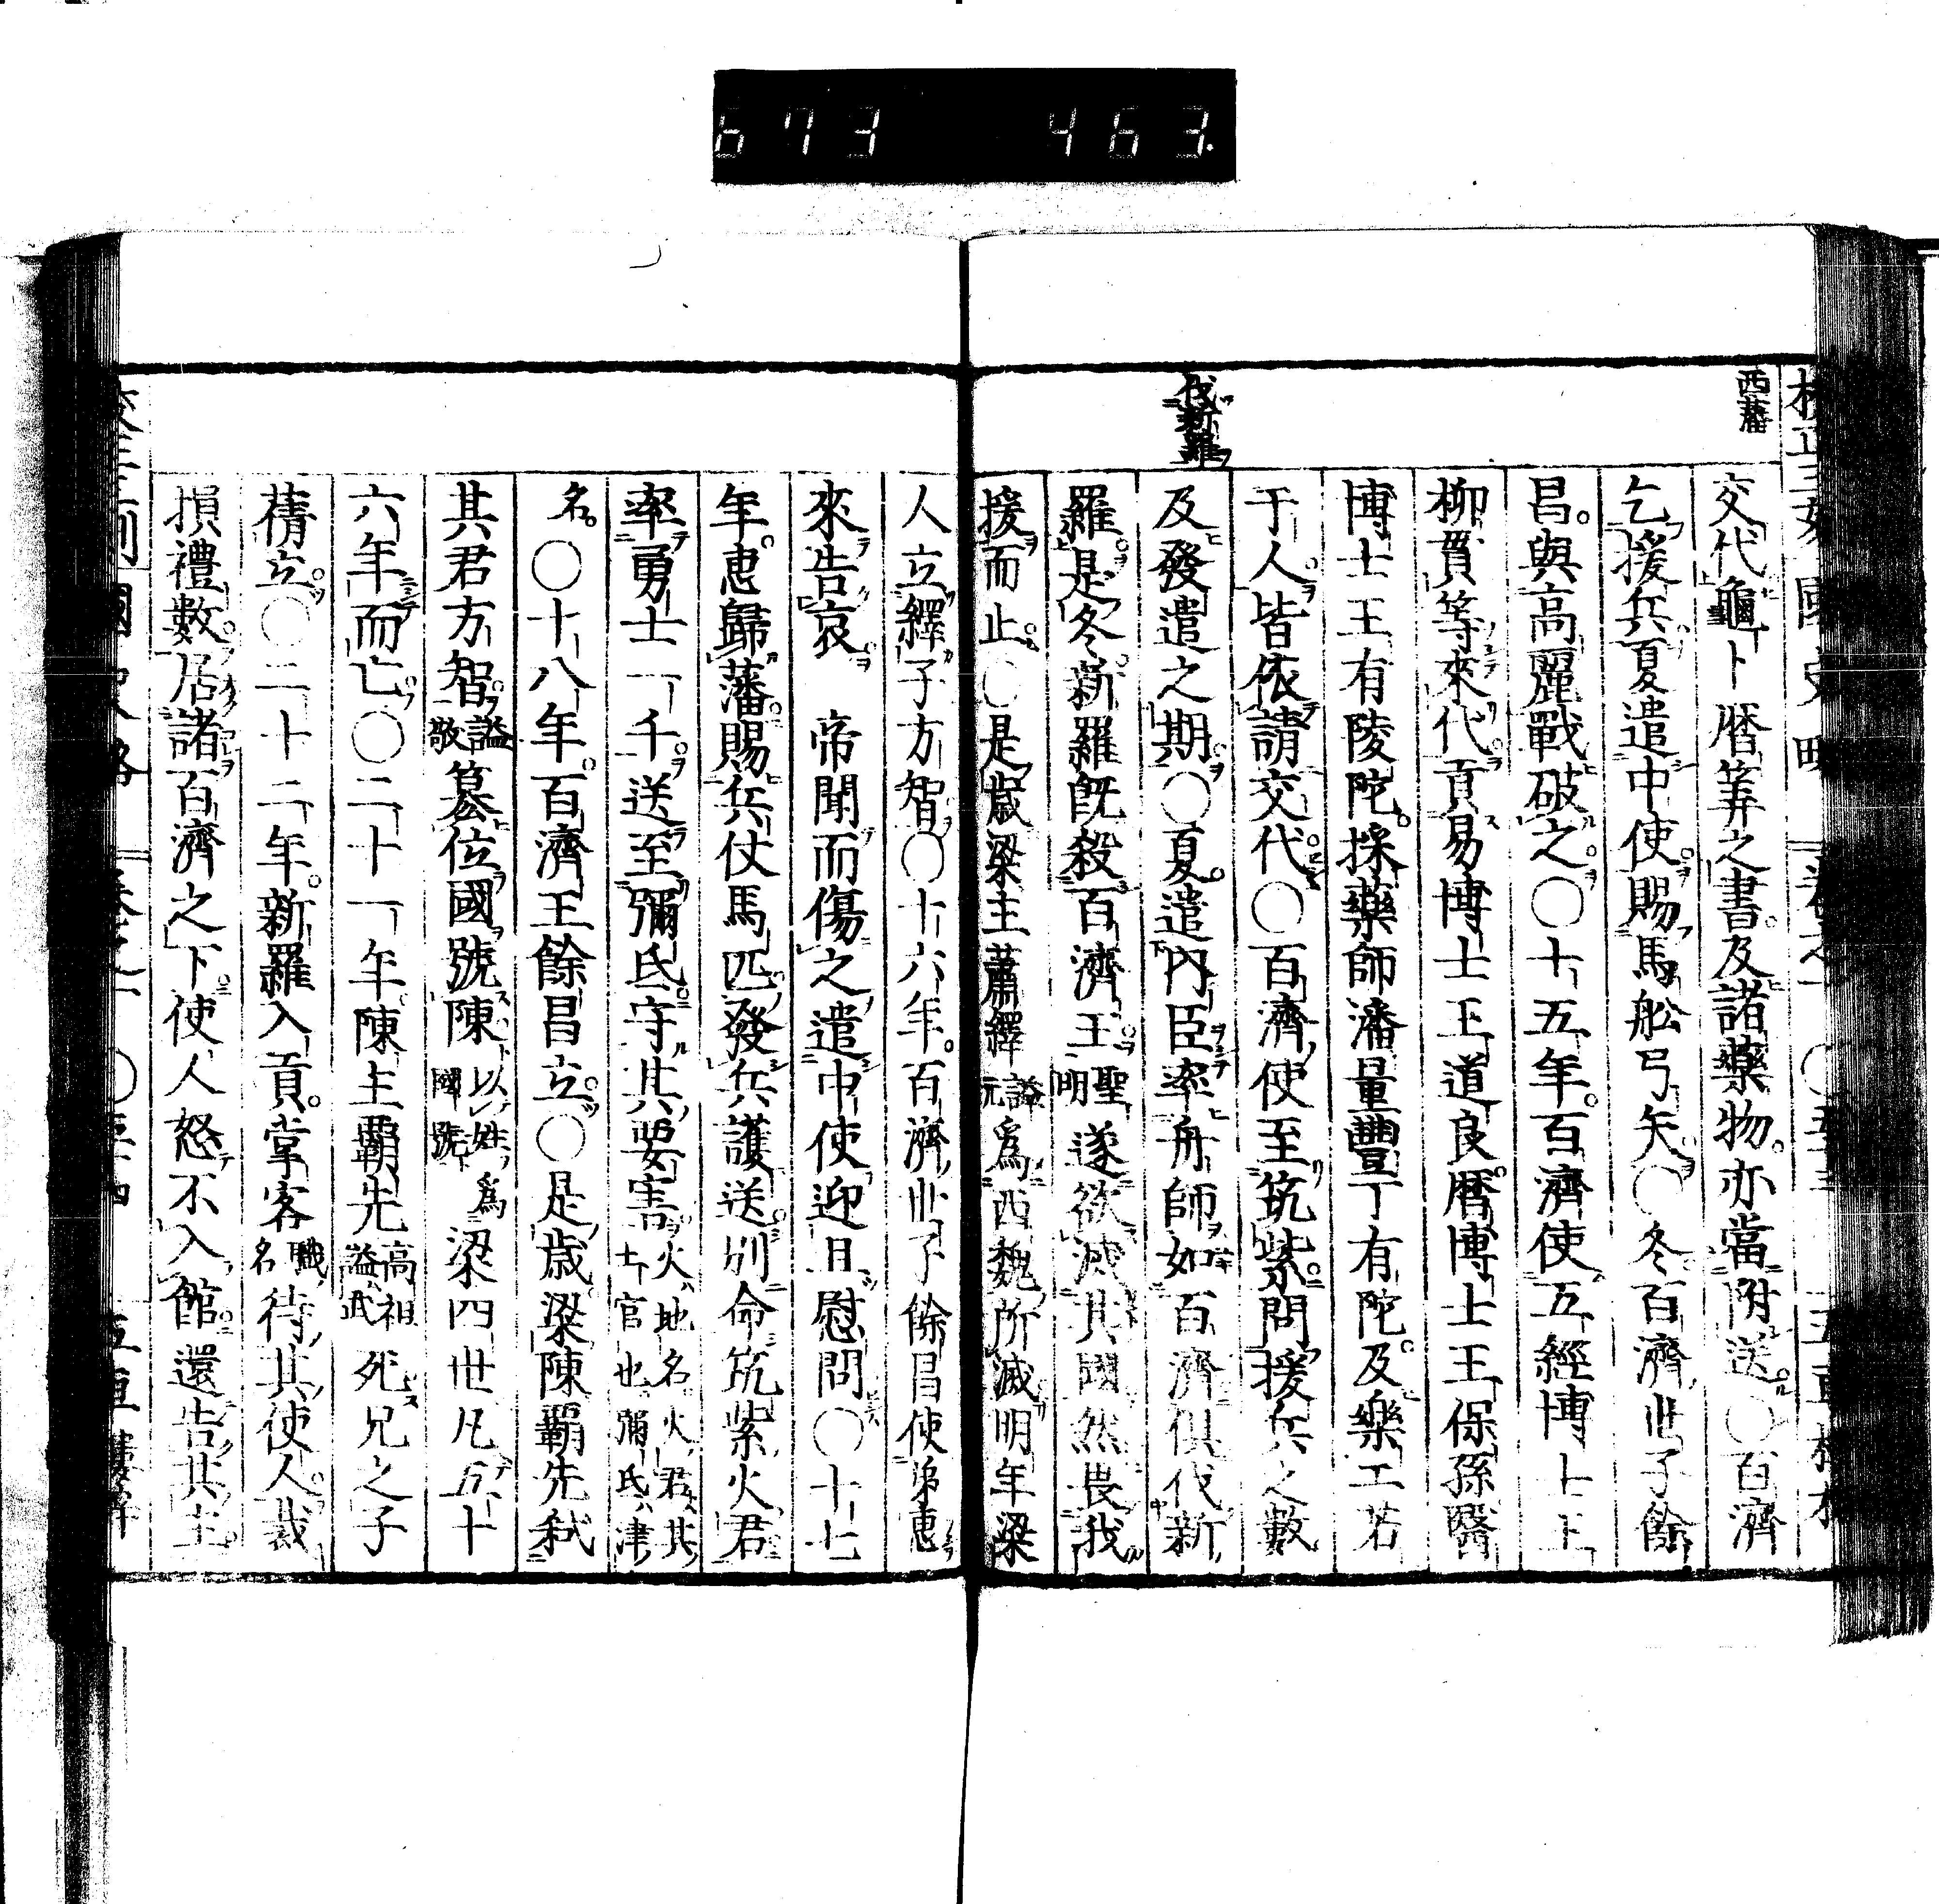 673 463.
西藩
交代龜卜暦筭之書及諸藥物亦當附送○百濟
乞援兵夏遣中使賜馬舩弓矢○冬百濟世子餘
昌與高麗戰破之○十五年百濟使五經博士王
柳貴等來代貢易博士王道良暦博士王保孫醫
博士王有陵陀採藥師潘量豐丁有陀及樂工若
于人皆依請交代○百濟使至筑紫問援兵之數
伐新羅
及發遣之期○夏遣內臣率舟師如百濟俱伐新
羅是冬新羅旣殺百濟王聖明遂欲滅其國然畏我
援而止○是歲梁主蕭繹諡元爲西魏所滅明年梁
人立繹子方智○十六年百濟世子餘昌使弟惠
來告哀 帝聞而傷之遣中使迎且慰問○十七
年惠歸藩賜兵仗馬匹發兵護送別命筑紫火君
率勇士一千送至彌氏守其要害火地名火君其士官也彌氏津
名○十八年百濟王餘昌立○是歲梁陳覇先弒
其君方智諡敬簒位國號陳以姓爲國號梁四世凡五十
六年而亡○二十一年陳主覇先高祖諡武死兄之子
蒨立○二十二年新羅入貢掌客職名待其使人裁
損禮數居諸百濟之下使人怒不入館還告其主